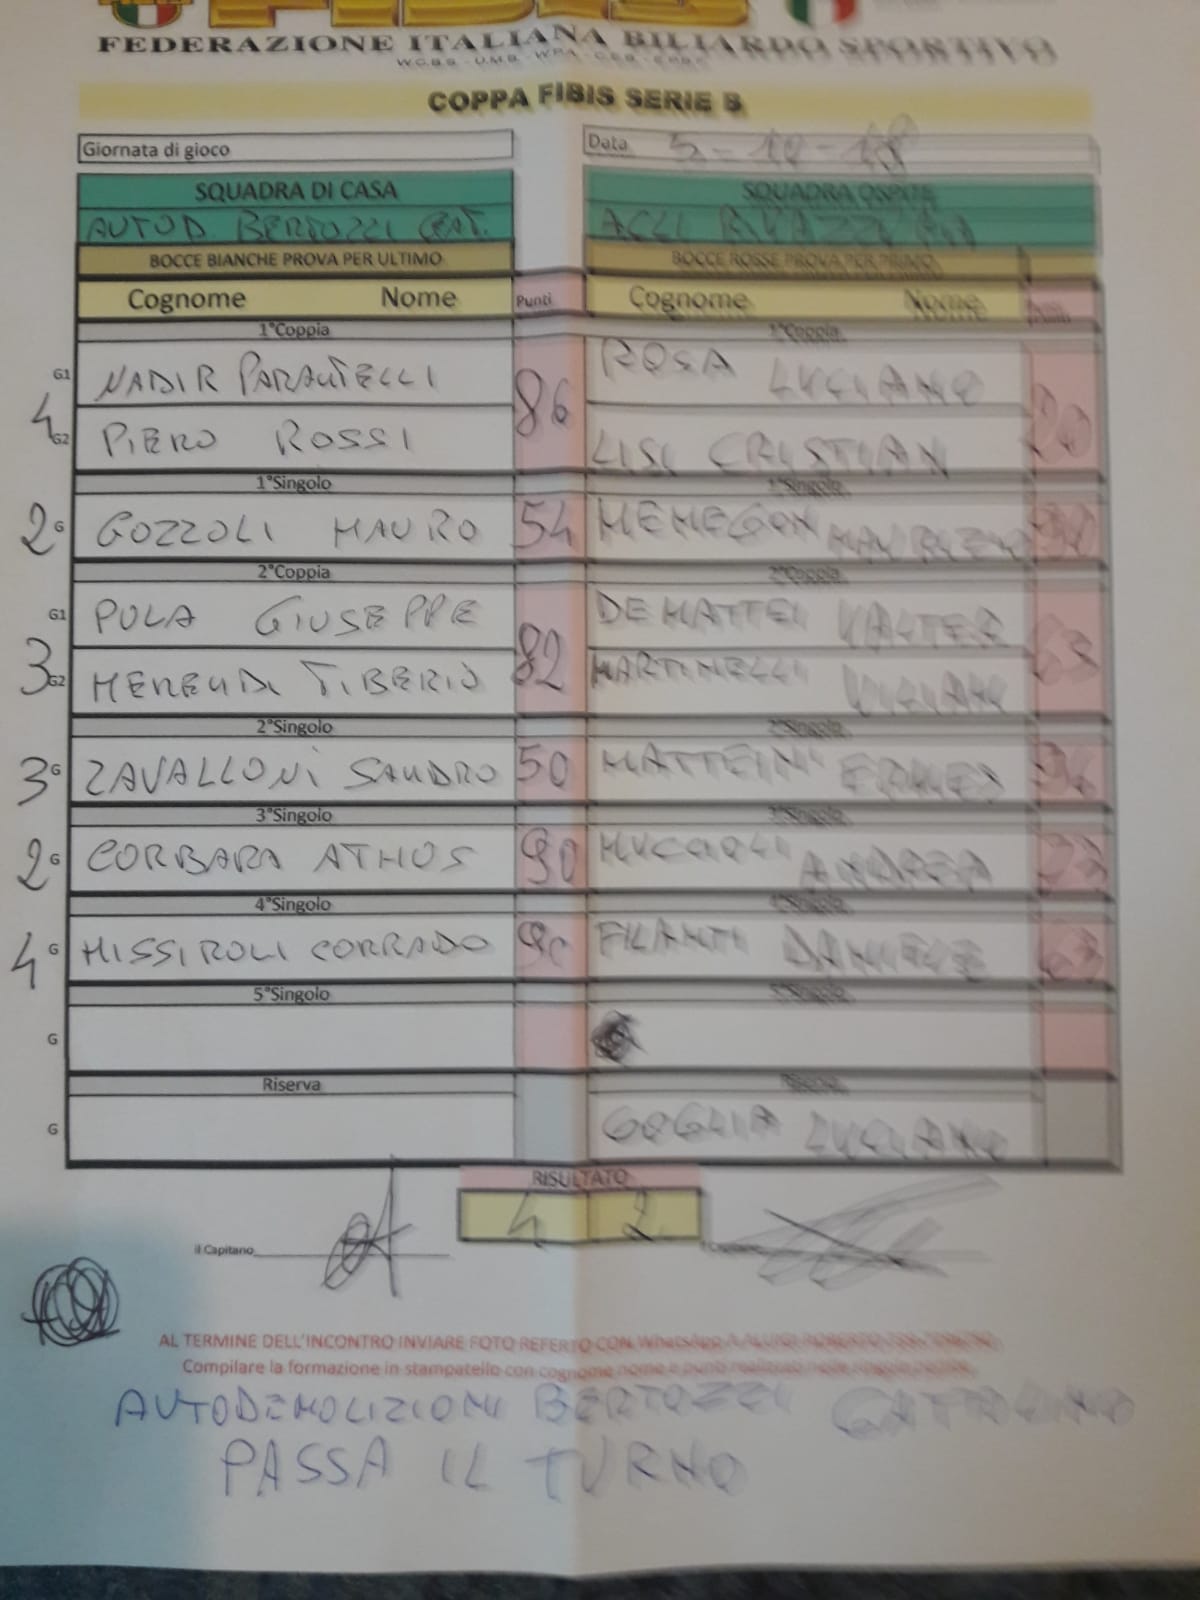 FEDERAZIONE ITALIANA BILIARDO SPORTIVO
COPPA FIBIS SERIE B
Giornata di gioco
Data 5-10-18
SQUADRA DI CASA
AUTOD. BERTOZZI GAT.
BOCCE BIANCHE PROVA PER ULTIMO
SQUADRA OSPITE
ACLI
BOCCE ROSSE PROVA PER PRIMO
Cognome Nome Punti Cognome Nome Punti
1°Coppia 1°Coppia
G1 NADIR 86 ROSA LUCIANO
4 G2 PIERO ROSSI LISI CRISTIAN
1°Singolo 1°Singolo
2 G GOZZOLI MAURO 54 MENEGON MAURIZIO
2°Coppia 2°Coppia
G1 PULA GIUSEPPE 82 DEMATTEI VALTER
3 G2 TIBERIO MARTINELLI
2°Singolo 2°Singolo
3 G ZAVALLONI SANDRO 50 MATTEINI
3°Singolo 3°Singolo
2 G CORBARA ATHOS 90 MUCCIOLI ANDREA
4°Singolo 4°Singolo
4 G MISSIROLI CORRADO 90 FILANTI DANIELE 63
5°Singolo 5°Singolo
G
Riserva Riserva
G GOGLIA LUCIANO
RISULTATO
4 2
il Capitano il Capitano
AL TERMINE DELL'INCONTRO INVIARE FOTO REFERTO CON WhatsApp A ALUIGI ROBERTO
Compilare la formazione in stampatello con cognome nome e punti
AUTODEMOLIZIONI BERTOZZI GATTOLINO
PASSA IL TURNO